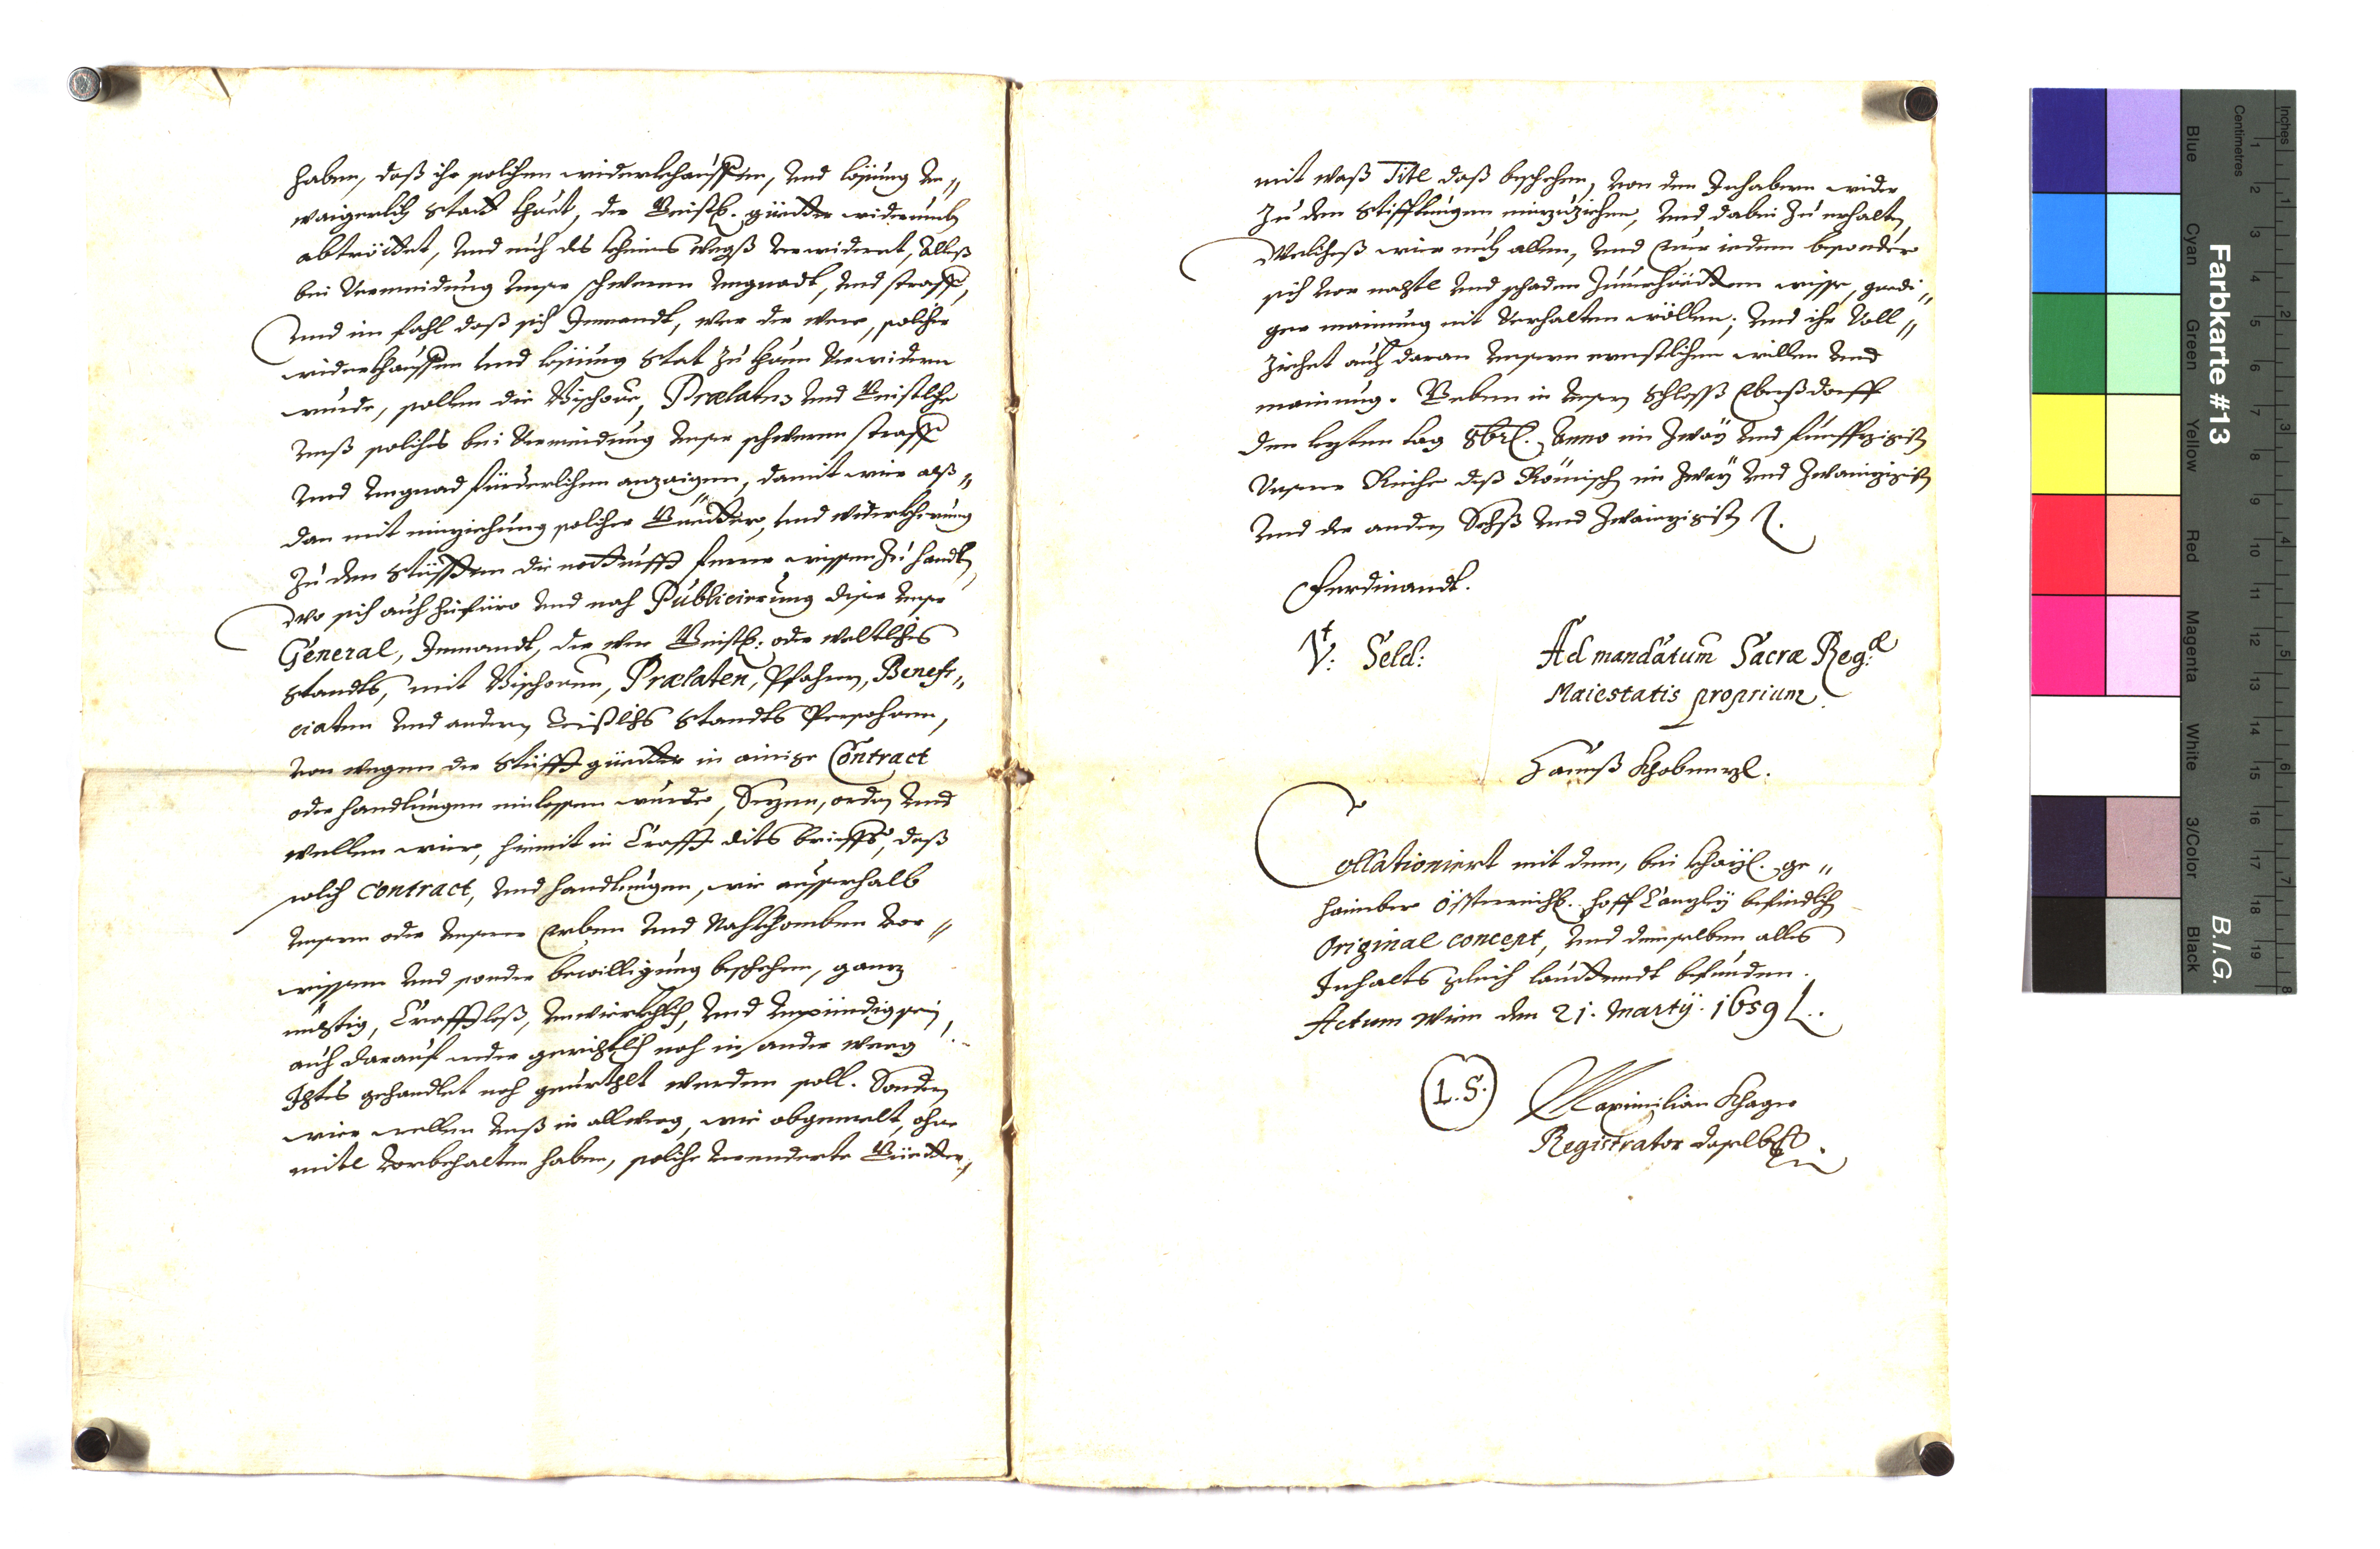 haben, daß ihr solchen widerkhauffen, und losung un„
waigerlich statt thuet, die Geistl. güetter widerumb
abtröttet, und euch des khaines weegß verwidert, alles
bei vermeidung unser schweren ungnadt, und straff,
und im fahl daß sich Jemandt, wer der were, solcher
widerkhauffen und losung stat zu thuen verwidern
wurde, sollen die Bischove, Prælaten und Geistliche
unß solches bei vermeidung unser schweren straff
und ungnad fürderlichen anzaigen, damit wir alß„
dan mit einziehung solcher Güetter, und widerkherung
zu den Stüfften die notturfft ferrer wissen zu handlen,
Wo sich auch hinfüro und nach Publicierung diser unser
General, Jemandt, der wer Geistl: oder weltliches
standts, mit Bischoven, Prælaten, Pfahrern, Benefi„
ciaten und andern Geistliches Standts Persohnen,
von wegen der Stüfft güetter in ainige Contract
oder handlungen einlassen wurde, Sezen, orden und
wellen wir, hiemit in Crafft dits brieffs, daß
solch Contract, und handlungen, wie ausserhalb
unserm oder unserer Erben und Nachkhomben vor„
wissen und sonder bewilligung beschehen, ganz
nichtig, Crafftloß, unwürkhlich, und unpündig sein,
auch darauf weder gerichtlich noch in ander weeg
Ichtes gehandlet noch geurthlt werden soll. Sondern
wir wellen unß in allweeg, wie obgemelt, ohne
mitl vorbehalten haben, solche verenderte Güetter,
mit waß Titl daß beschehen, von den Inhabern wider
zu den Stifftungen einzuziehen, und dabei zu erhalten,
Welches wir euch allen, und Eur iedem besonder
sich vor nachtl und schaden zuverhüetten wisse, gnedi„
ger mainung nit verhalten wöllen; und ihr voll„
ziehet auch daran unsern ernstlichen willen und
mainung. Geben in unserm Schloss Eberßdorff
den lezten tag 8brl. Anno im zway und funffzigisten
Unserer Reiche deß Römisch im zway und zwainzigisten
und der andern Sechß und zwainzigisten
Ferdinandt.
Vt: Seld: Ad mandatum Sacræ Reg:æ
Maiestatis proprium
Hannß Khobenzl.
Collationiert mit dem, bei khayl. ge„
haimber Össterreichl. hoff Canzley befindlich
Original concept, und demselben alles
Inhalts gleich lauttendt befunden.
Actum Wien den 21. Martÿ. 1659
L.S. Maximilian Khager
Registrator daselbst
Farbkarte #13
B.I.G.
Inches
Centimetres
1 2 3 4 5 6 7 8 9 10 11 12 13 14 15 16 17 18 19
1 2 3 4 5 6 7 8
Blue
Cyan
Green
Yellow
Red
Magenta
White
3/Color
Black